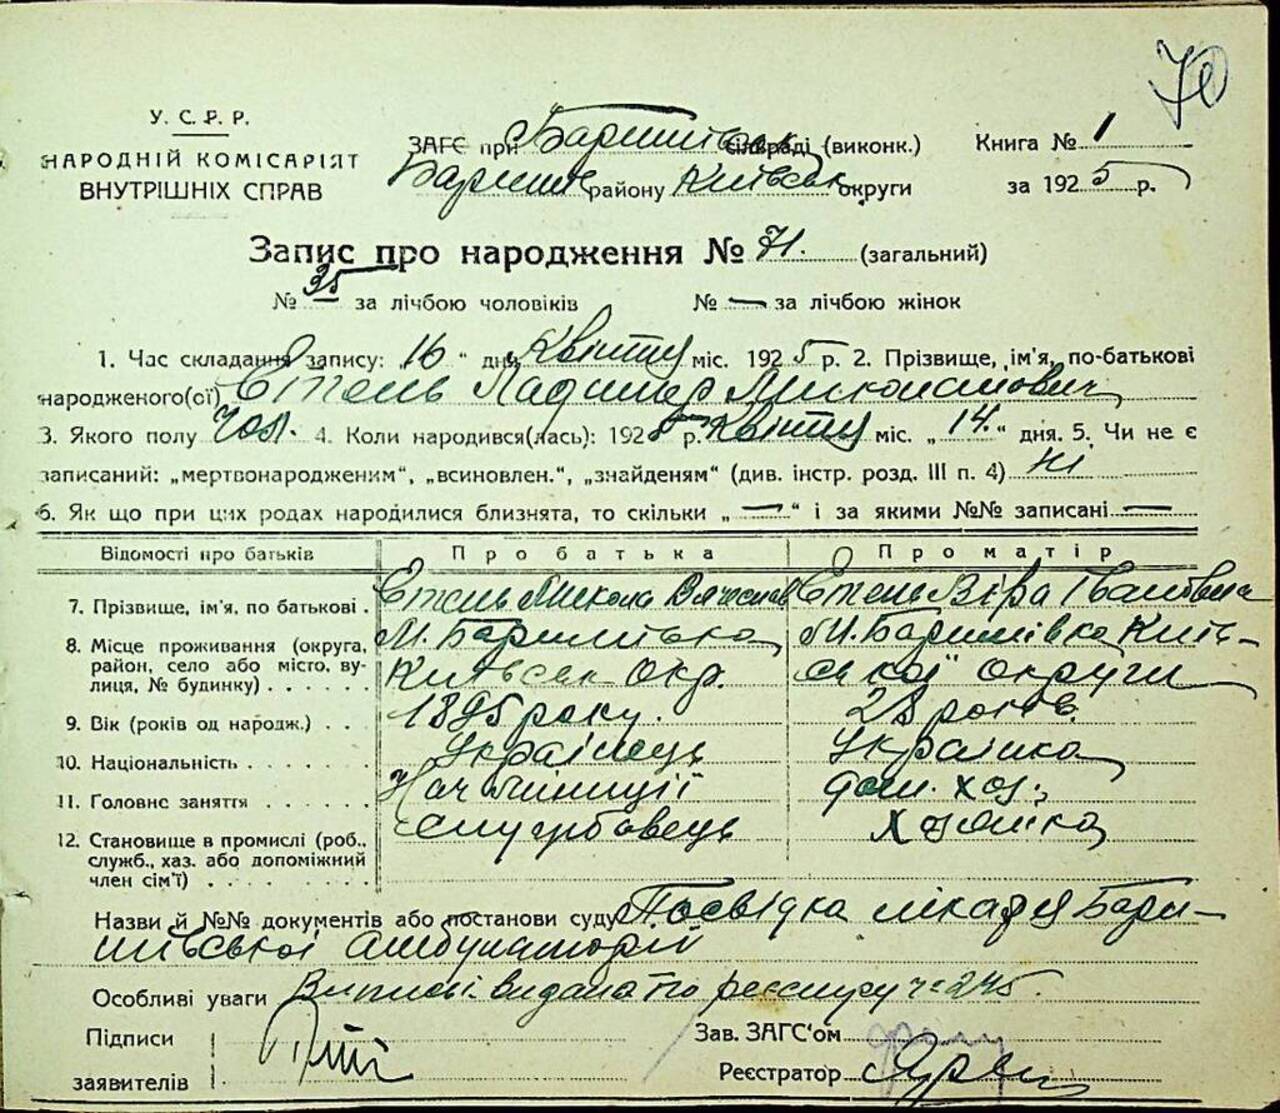 70
У. С. Р. Р.
НАРОДНІЙ КОМІСАРІЯТ
ВНУТРІШНІХ СПРАВ
ЗАГС при Баришівськ сільраді (виконк.)
Книга № 1
Баришів району Київськ округи
за 1925 р.
Запис про народження № 71. (загальний)
№ 35 за лічбою чоловіків № — за лічбою жінок
1. Час складання запису: „16“ дня Квітня міс. 1925 р. 2. Прізвище, ім'я, по-батькові
народженого(ої) Етель Ладимер Миколайович
3. Якого полу Чол. 4. Коли народився(лась): 1925 р. Квітня міс. „14.“ дня. 5. Чи не є
записаний: „мертвонародженим“, „всиновлен.“, „знайденям“ (див. інстр. розд. III п. 4) Ні
6. Як що при цих родах народилися близнята, то скільки „—“ і за якими №№ записані —
Відомості про батьків Про батька Про матір
7. Прізвище, ім'я, по батькові . Етель Микола Вячеслав Етель Віра Івановна
8. Місце проживання (округа, район, село або місто, вулиця, № будинку) . . . . . . М. Баришівка Київськ Окр. М. Баришівка Київської округи
9. Вік (років од народж.) . . 1895 року. 28 років.
10. Національність . . . . . . . Українець Українка
11. Головне заняття . . . . . . Нач міліції дом. хоз.
12. Становище в промислі (роб., служб., хаз. або допоміжний член сім'ї) . . . . . . . Службовець Хозяйка
Назви й №№ документів або постанови суду Посвідка лікаря Бари-
шівської амбулаторії
Особливі уваги Випись видана по реєстру ч 245.
Підписи
заявителів
Зав. ЗАГС'ом
Реєстратор